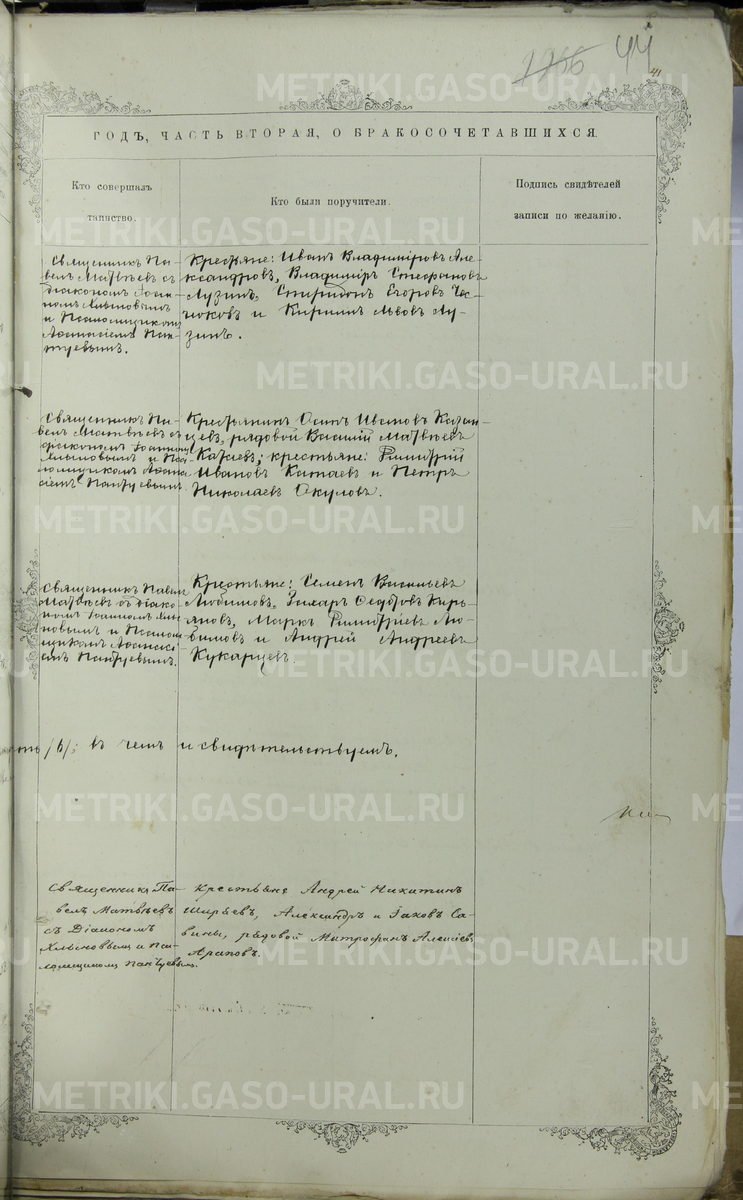 1266 44
41
ГОДЪ, ЧАСТЬ ВТОРАЯ, О БРАКОСОЧЕТАВШИХСЯ.
Кто совершалъ
таинство.
Кто были поручители.
Подпись свидѣтелей
записи по желанію.
Священникъ Па-
велъ Матвѣевъ съ
діакономъ Іоан-
номъ Хлыновымъ
и Псаломщикомъ
Аѳанасіемъ Пан-
туевымъ.
Крестьяне: Иванъ Владиміровъ Але-
ксандровъ, Владиміръ Стефановъ
Лузинъ, Спиридонъ Егоровъ
и Кириллъ Львовъ Лу-
зинъ.
Священникъ Па-
велъ Матвѣевъ съ
діакономъ Іоанномъ
Хлыновымъ и Пса-
ломщикомъ Аѳана
сіемъ Пантуевымъ.
Крестьянинъ Осипъ Ивановъ Казан-
цевъ, рядовой Василій Матвѣевъ
Катаевъ; крестьяне: Димитрій
Ивановъ Катаевъ и Петръ
Николаевъ Окуловъ.
Священникъ Павелъ
Матвѣевъ съ діако-
номъ Іоанномъ Хлы-
новымъ и Псалом-
щикомъ Аѳанасі-
емъ Пантуевымъ.
Крестьяне: Семенъ Васильевъ
Любимовъ, Захаръ Федотовъ Кирь-
яновъ, Маркъ Димитріевъ Лю-
бимовъ и Андрей Андреевъ
Кукарцевъ.
въ чемъ и свидѣтельствуемъ.
Священникъ Па-
велъ Матвѣевъ
съ Діакономъ
Хлыновымъ и Пса-
ломщикомъ Пантуевымъ.
Крестьяне Андрей Никитинъ
Ширяевъ, Александръ и Іаковъ Са-
вины, рядовой Митрофанъ Алексѣевъ
Араповъ.
METRIKI.GASO-URAL.RU